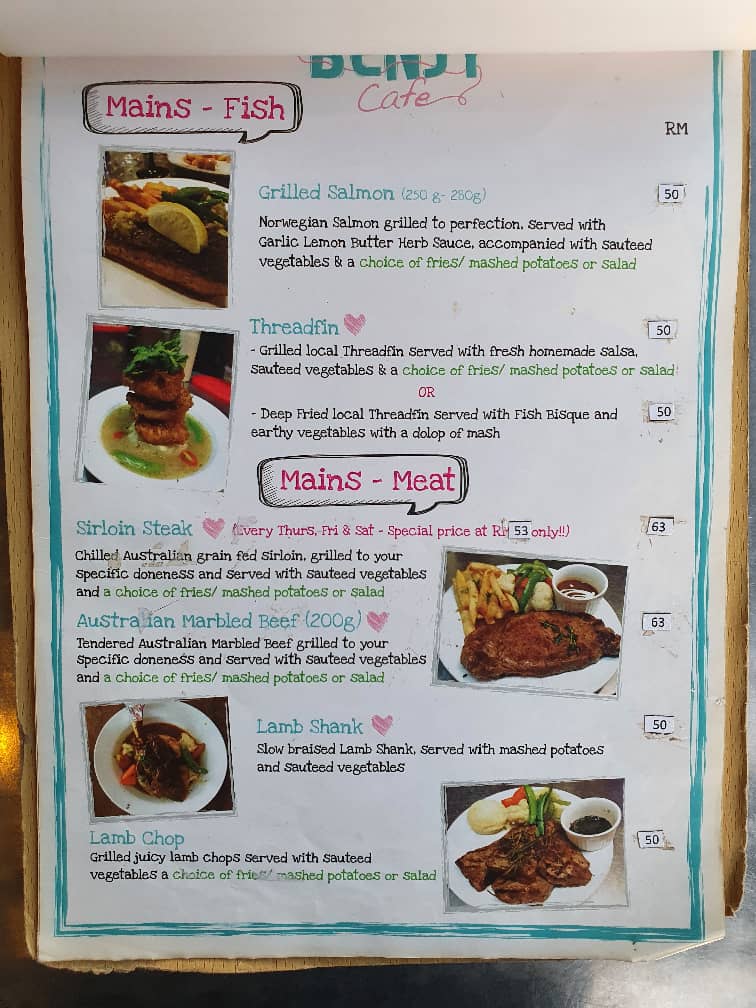 BENJY
Cafe
Mains - Fish
RM
Grilled Salmon (250 g- 280g) 50
Norwegian Salmon grilled to perfection, served with
Garlic Lemon Butter Herb Sauce, accompanied with sauteed
vegetables & a choice of fries/ mashed potatoes or salad
Threadfin 50
- Grilled local Threadfin served with fresh homemade salsa,
sauteed vegetables & a choice of fries/ mashed potatoes or salad
OR
- Deep Fried local Threadfin served with Fish Bisque and 50
earthy vegetables with a dolop of mash
Mains - Meat
Sirloin Steak (Every Thurs, Fri & Sat - Special price at RM 53 only!!) 63
Chilled Australian grain fed sirloin, grilled to your
specific doneness and served with sauteed vegetables
and a choice of fries/ mashed potatoes or salad
Australian Marbled Beef (200g) 63
Tendered Australian Marbled Beef grilled to your
specific doneness and served with sauteed vegetables
and a choice of fries/ mashed potatoes or salad
Lamb Shank 50
Slow braised Lamb Shank, served with mashed potatoes
and sauteed vegetables
Lamb Chop 50
Grilled juicy lamb chops served with sauteed
vegetables a choice of fries/ mashed potatoes or salad